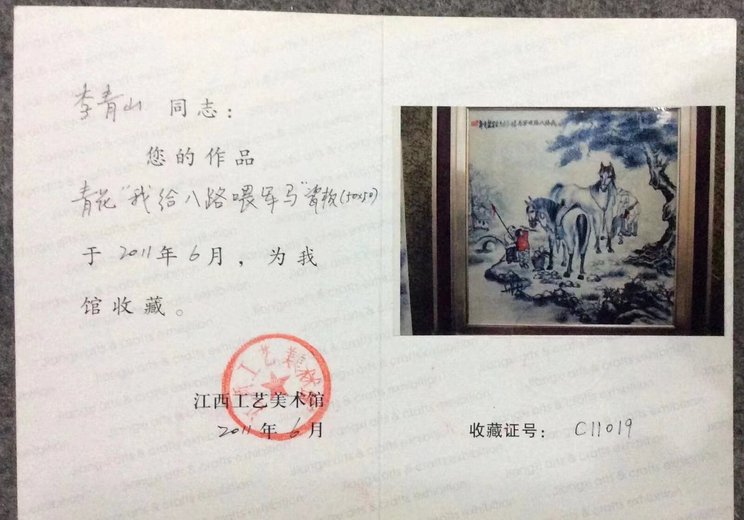 李青山 同志：
您的作品
青花"我给八路喂军马"瓷板(50x50)
于2011年6月，为我
馆收藏。
江西工艺美术馆
2011年6月
收藏证号： C11019
jiangxi arts & crafts exhibition